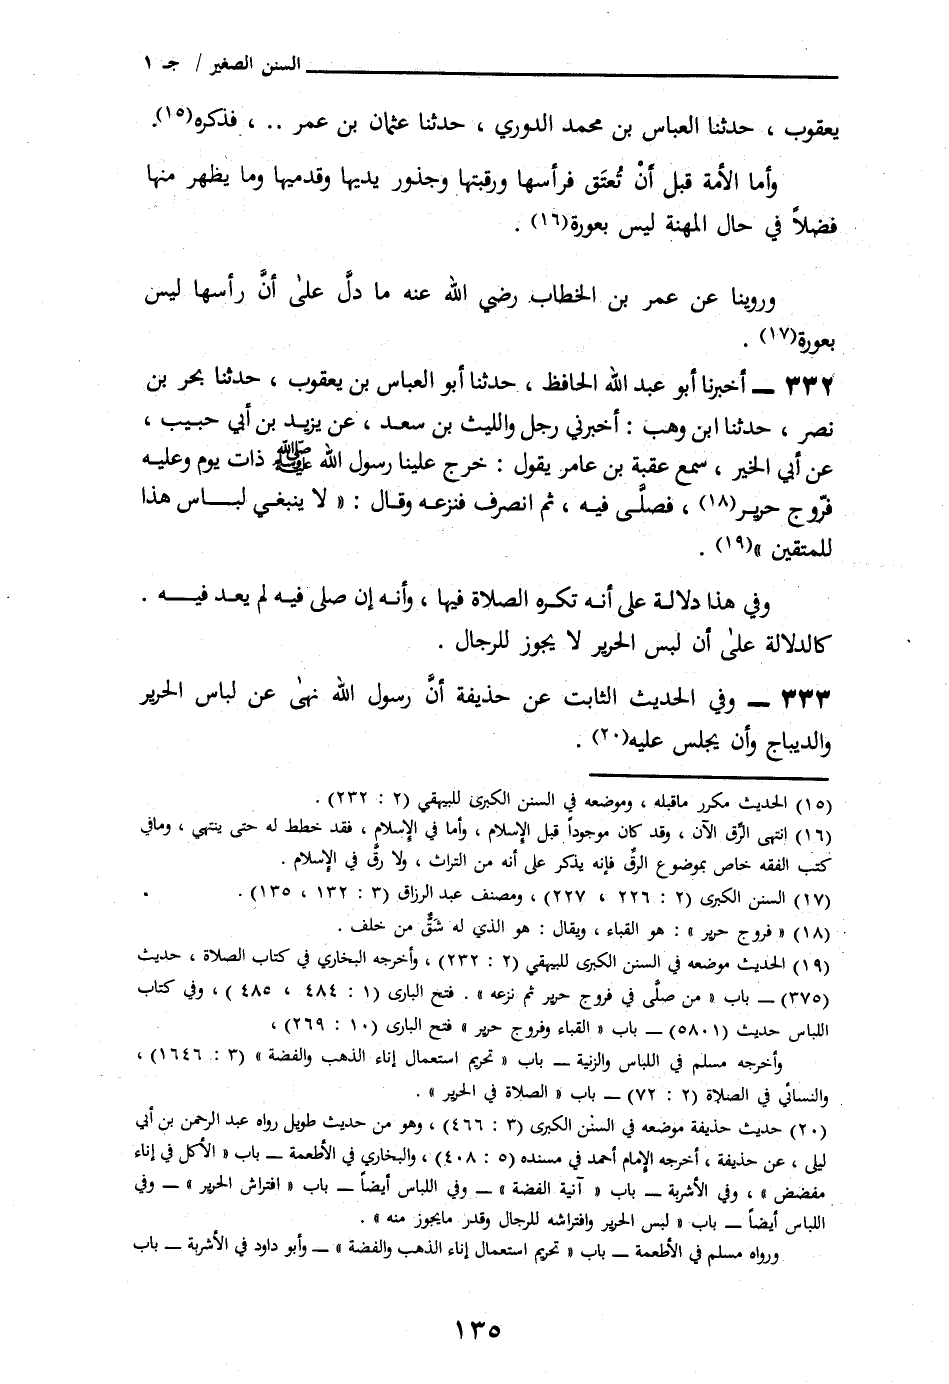 السنن الصغير / جـ ١
يعقوب ، حدثنا العباس بن محمد الدوري ، حدثنا عثمان بن عمر .. ، فذكره(١٥).
وأما الأمة قبل أنْ تُعتَق فرأسها ورقبتها وجذور يديها وقدميها وما يظهر منها
فضلاً في حال المهنة ليس بعورة(١٦) .
وروينا عن عمر بن الخطاب رضي الله عنه ما دلَّ على أنَّ رأسها ليس
بعورة(١٧) .
٣٣٢ ــ أخبرنا أبو عبد الله الحافظ ، حدثنا أبو العباس بن يعقوب ، حدثنا بحر بن
نصر ، حدثنا ابن وهب : أخبرني رجل والليث بن سعد ، عن يزيد بن أبي حبيب ،
عن أبي الخير ، سمع عقبة بن عامر يقول : خرج علينا رسول الله ﷺ ذات يوم وعليه
فرّوج حرير(١٨) ، فصلَّى فيه ، ثم انصرف فنزعه وقال : « لا ينبغي لباس هذا
للمتقين »(١٩) .
وفي هذا دلالة على أنه تكره الصلاة فيها ، وأنه إن صلى فيه لم يعد فيه .
كالدلالة على أن لبس الحرير لا يجوز للرجال .
٣٣٣ ــ وفي الحديث الثابت عن حذيفة أنَّ رسول الله نهىٰ عن لباس الحرير
والديباج وأن يجلس عليه(٢٠) .
(١٥) الحديث مكرر ماقبله ، وموضعه في السنن الكبرى للبيهقي (٢ : ٢٣٢) .
(١٦) إنتهى الرِّق الآن ، وقد كان موجوداً قبل الإسلام ، وأما في الإسلام ، فقد خطط له حتى ينتهي ، ومافي
كتب الفقه خاص بموضوع الرقِّ فإنه يذكر على أنه من التراث ، ولا رقَّ في الإسلام .
(١٧) السنن الكبرى (٢ : ٢٢٦ ، ٢٢٧) ، ومصنف عبد الرزاق (٣ : ١٣٢ ، ١٣٥) .
(١٨) « فروج حرير » : هو القباء ، ويقال : هو الذي له شَقٌّ من خلف .
(١٩) الحديث موضعه في السنن الكبرى للبيهقي (٢ : ٢٣٢) ، وأخرجه البخاري في كتاب الصلاة ، حديث
(٣٧٥) ــ باب « من صلَّى في فروج حرير ثم نزعه » . فتح البارى (١ : ٤٨٤ ، ٤٨٥ ) ، وفي كتاب
اللباس حديث (٥٨٠١) ــ باب « القباء وفروج حرير » فتح البارى (١٠ : ٢٦٩) ،
وأخرجه مسلم في اللباس والزنية ــ باب « تحريم استعمال إناء الذهب والفضة » (٣ : ١٦٤٦) ،
والنسائي في الصلاة (٢ : ٧٢) ــ باب « الصلاة في الحرير » .
(٢٠) حديث حذيفة موضعه في السنن الكبرى (٣ : ٤٦٦) ، وهو من حديث طويل رواه عبد الرحمن بن أبي
ليلى ، عن حذيفة ، أخرجه الإمام أحمد في مسنده (٥ : ٤٠٨) ، والبخاري في الأطعمة ــ باب « الأكل في إناء
مفضض » ، وفي الأشربة ــ باب « آنية الفضة » ــ وفي اللباس أيضاً ــ باب « افتراش الحرير » ــ وفي
اللباس أيضاً ــ باب « لبس الحرير وافتراشه للرجال وقدر مايجوز منه » .
ورواه مسلم في الأطعمة ــ باب « تحريم استعمال إناء الذهب والفضة » ــ وأبو داود في الأشربة ــ باب
١٣٥